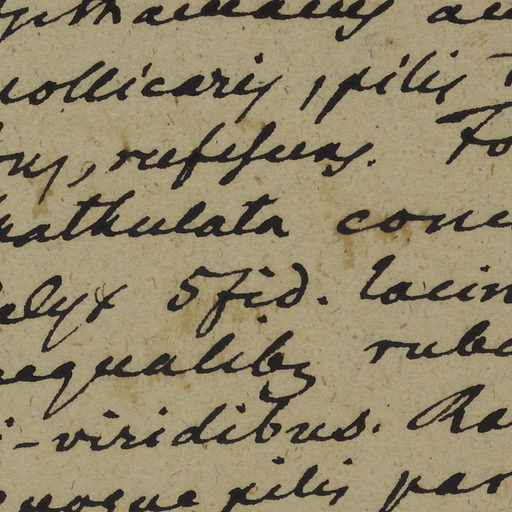 pollicaris, pilis
rufescens. Fo
spathulata conc
calyx 5fid. lacin
aequalibus rube
i-viridibus. Ra
quoque pilis par